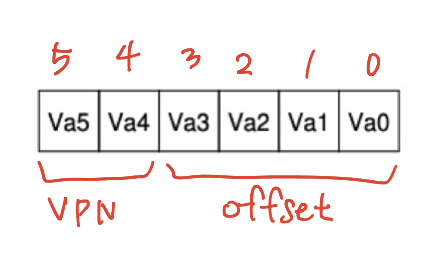 5 4 3 2 1 0
Va5 Va4 Va3 Va2 Va1 Va0
VPN offset